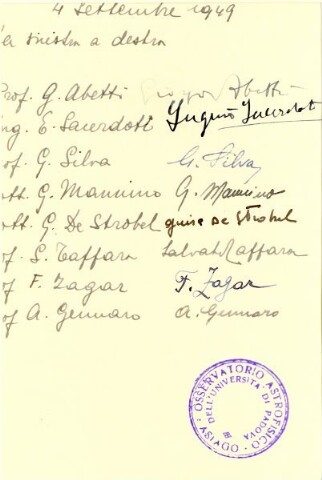 4 Settembre 1949
da sinistra a destra
Prof. G. Abetti Giorgio Abetti
Ing. E. Sacerdoti Eugenio Sacerdoti
Prof. G. Silva G. Silva
Dott. G. Mannino G. Mannino
Dott. G. De Strobel De Strobel
Prof. S. Taffara Salvat. Taffara
Prof F. Zagar F. Zagar
Prof A. Gennaro A. Gennaro
OSSERVATORIO ASTROFISICO - ASIAGO
DELL'UNIVERSITÀ DI PADOVA